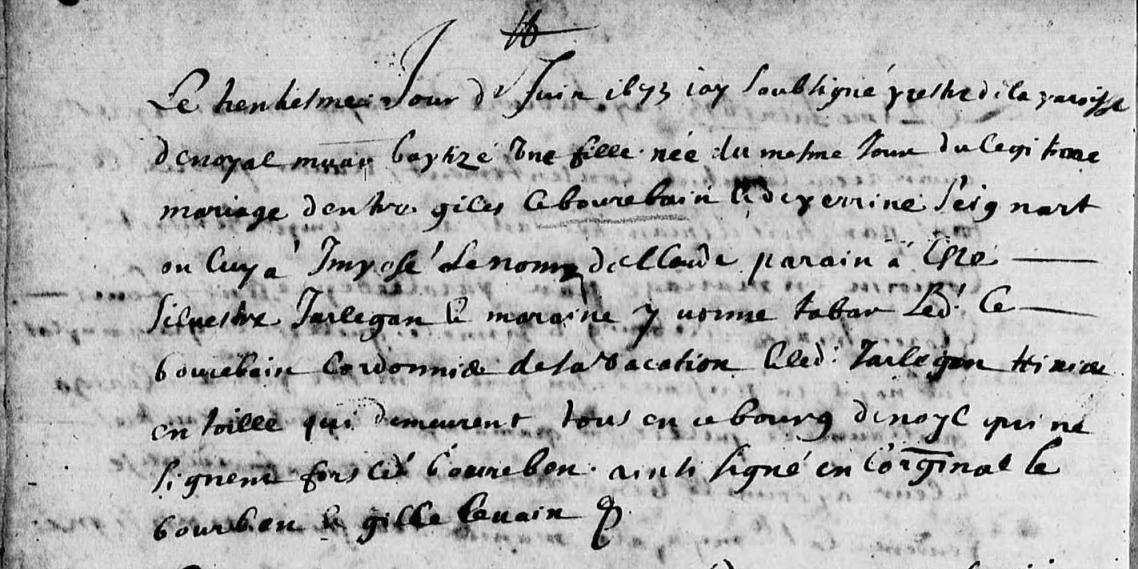 Le trentiesme Jour de Juin 1693 iay soubsigné prestre de la paroisse
de noyal muzac baptizé Une fille née du mesme Jour du legitime
mariage dentre giles le bourebain et de perrine Seignart
on luy a Imposé le nom de parain a esté
Silvestre Tarlegan et maraine yvonne tabar led. le
bourebain Cordonnier de la Vacation et led. Tarlegan
en toille qui demeurent tous en ce bourg de noyl qui ne
signent fors led. boureben ainsi signé en l'orginal le
bourben et gille